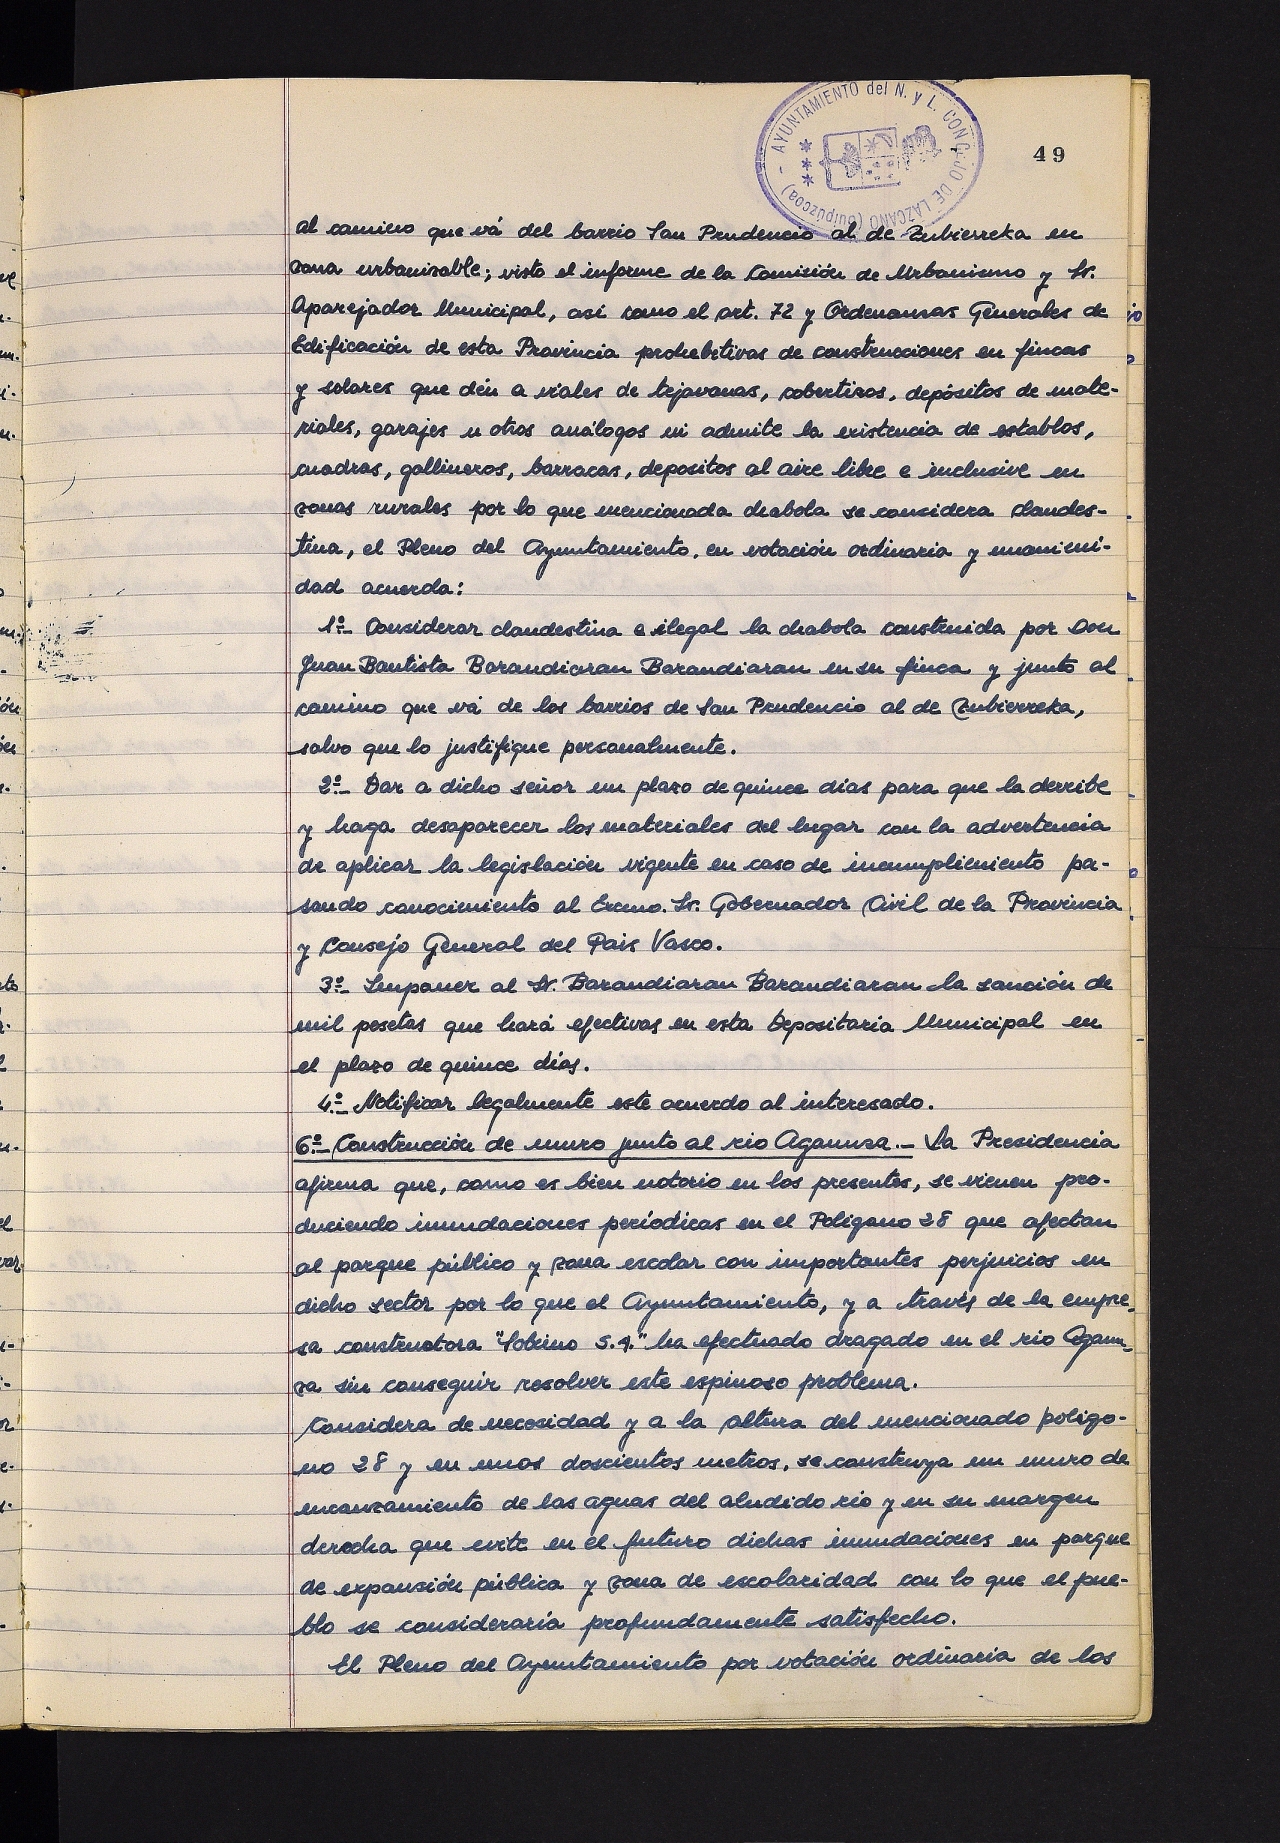 AYUNTAMIENTO del N. y L. CONCEJO DE LAZCANO (Guipúzcoa)
49
al camino que vá del barrio San Prudencio al de Zubierreka en
zona urbanizable; visto el informe de la Comisión de Urbanismo y Sr.
Aparejador Municipal, asi como el art. 72 y Ordenanzas Generales de
Edificación de esta Provincia prohebitivas de construcciones en fincas
y solares que dén a viales de tejavanas, cobertizos, depósitos de mate-
riales, garajes u otros análogos ni admite la existencia de establos,
cuadras, gallineros, barracas, depositos al aire libre e inclusive en
zonas rurales por lo que mencionada chabola se considera clandes-
tina, el Pleno del Ayuntamiento, en votación ordinaria y unanimi-
dad acuerda:
1º.- Considerar clandestina e ilegal la chabola construida por Don
Juan Bautista Barandiaran Barandiaran en su finca y junto al
camino que vá de los barrios de San Prudencio al de Zubierreka,
salvo que lo justifique personalmente.
2º.- Dar a dicho señor un plazo de quince dias para que la derribe
y haga desaparecer los materiales del lugar con la advertencia
de aplicar la legislación vigente en caso de incumplimiento pa-
sando conocimiento al Excmo. Sr. Gobernador Civil de la Provincia
y Consejo General del Pais Vasco.
3º.- Imponer al Sr. Barandiaran Barandiaran la sanción de
mil pesetas que hará efectivas en esta Depositaria Municipal en
el plazo de quince dias.
4º.- Notificar legalmente este acuerdo al interesado.
6º.- Construcción de muro junto al rio Agaunza.- La Presidencia
afirma que, como es bien notorio en los presentes, se vienen pro-
duciendo inundaciones periodicas en el Poligano 28 que afectan
al parque público y zona escolar con importantes perjuicios en
dicho sector por lo que el Ayuntamiento, y a través de la empre-
sa constructora "Sobrino S.A." ha efectuado dragado en el rio Agaun-
za sin conseguir resolver este espinoso problema.
Considera de necesidad y a la altura del mencionado poligo-
no 28 y en unos doscientos metros, se construya un muro de
encanzamiento de las aguas del aludido rio y en su margen
derecha que evite en el futuro dichas inundaciones en parque
de expansión pública y zona de escolaridad con lo que el pue-
blo se consideraría profundamente satisfecho.
El Pleno del Ayuntamiento por votación ordinaria de los